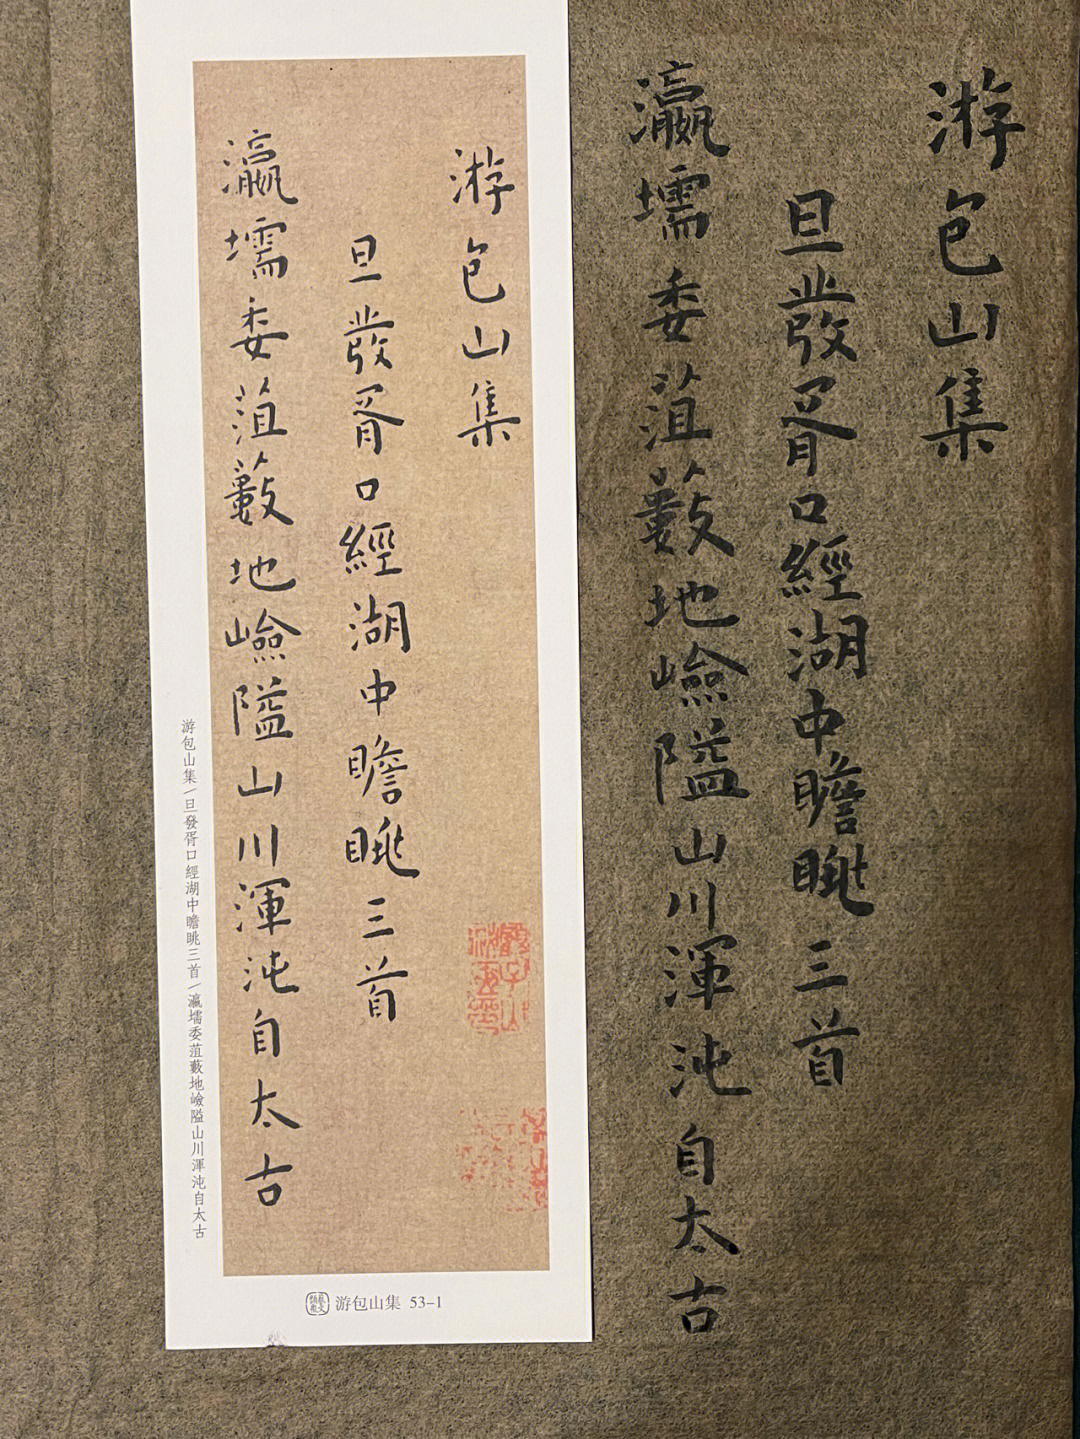 游包山集
旦發胥口經湖中瞻眺三首
瀛壖委菹藪地嶮隘山川渾沌自太古
游包山集
旦發胥口經湖中瞻眺三首
瀛壖委菹藪地嶮隘山川渾沌自太古
游包山集/旦發胥口經湖中瞻眺三首/瀛壖委菹藪地嶮隘山川渾沌自太古
游包山集 53-1